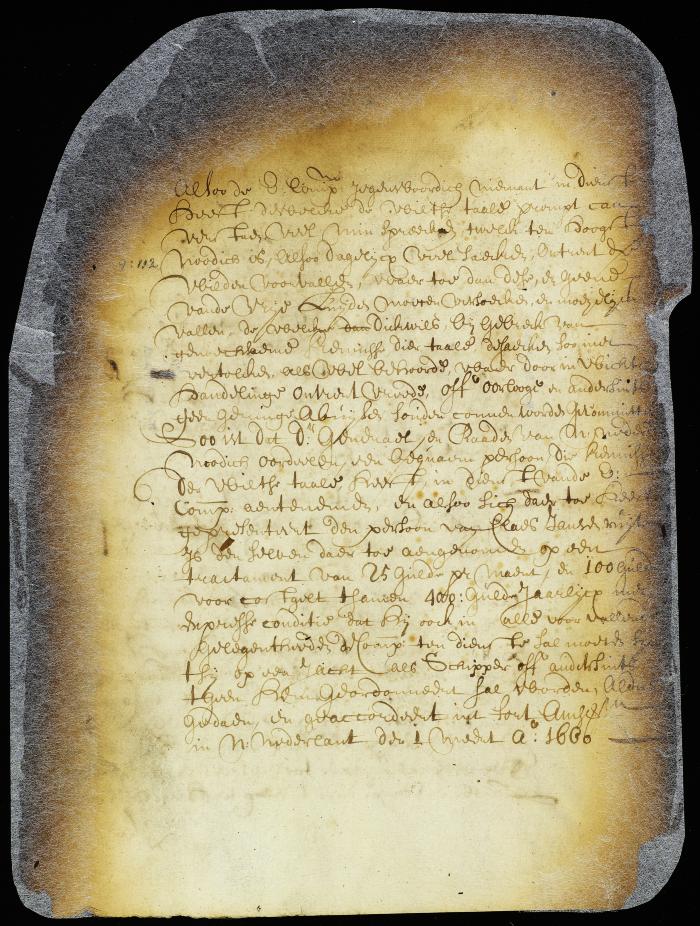 Alsoo de E: Comp: ne jegenwoordich niemant in dienst
heeft, dewelcke de wilthe taale prompt can
verstaen, veel min spreecken, twelck ten hoogsten
noodich is, alsoo dagelijcx veel saecken, ontrent de
wilden voorvallen, waer toe dan dese, en geene
vande vrije luijden moeten versoecken, en moeijelijck
vallen, de welcke dan dickwils, bij gebreck van
genoechsaeme kennisse dier taale de saecken soo niet
vertolcken, als wel behoorde, waer door in wichtige
handelinge ontrent vrede, off oorlooge en andersints
geen geringe abuijsen souden connen worden gecommitteert
Soo ist dat Dr. Generael, en Raaden van N: Nederlant
noodich oordeelen, een bequaem persoon die kennisse
der wilthe taale heeft, in dienst vande E:
Comp: aenteneemen, en alsoo sich daer toe heeft
gepresenteert den persoon van Claes Jansen ruijter
Is den selven daer toe aengenomen op een
tractament van 25 Gulde pr. Maent, en 100 Gulde
voor costgelt t'saemen 400: Gulde Jaarlijcx met
expresse conditie dat hij oock in alle voorvallende
gelegentheeden de Comp: ten dienste sal moeten staen
t'sij op een Jacht als Schipper off andersints
tgeen hem geordonneert sal worden, Aldus
gedaen, en geaccordeert int fort Amst:
in N: Nederlant den 1 Meert Ao: 1660